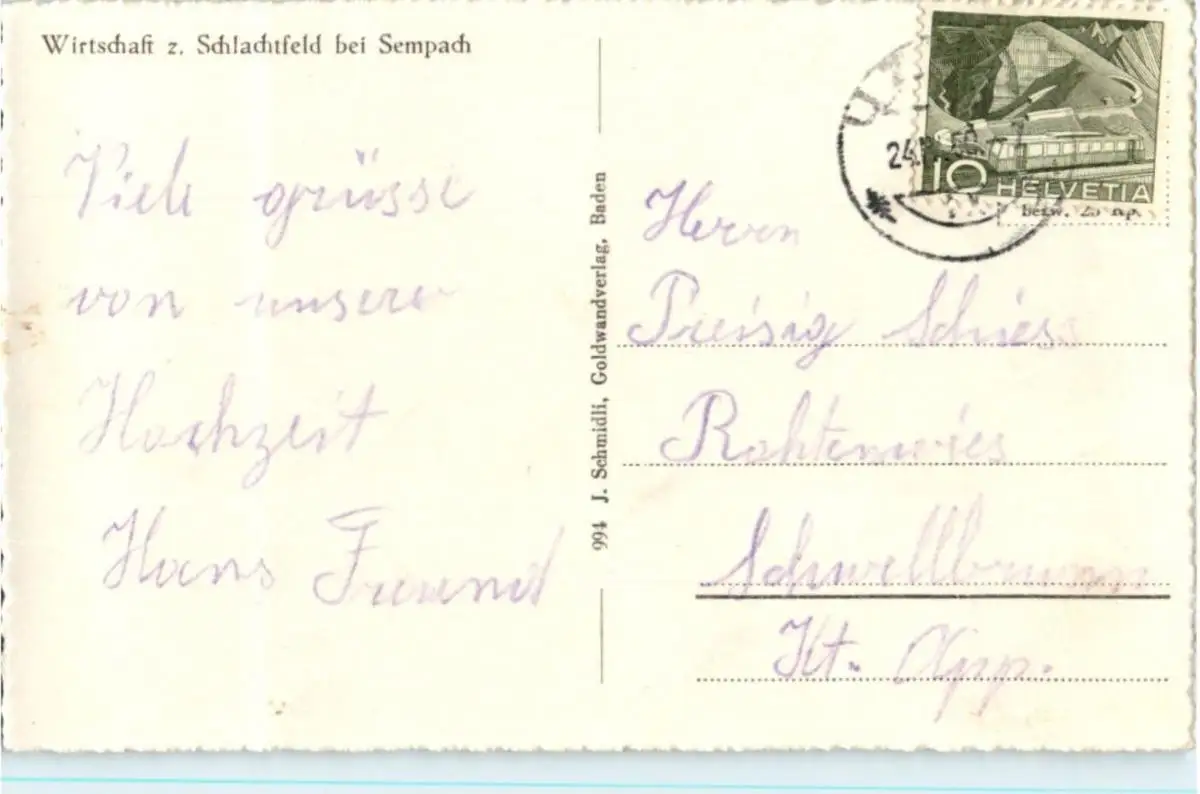 Wirtschaft z. Schlachtfeld bei Sempach
Viele grüsse
von unserer
Hochzeit
Hans Freund
994 J. Schmidli, Goldwandverlag, Baden
24.
10 HELVETIA
betw. 25 Rp.
Herrn
Preisig Schiess
Rohtenwies
Schwellbrunn
Kt. App.